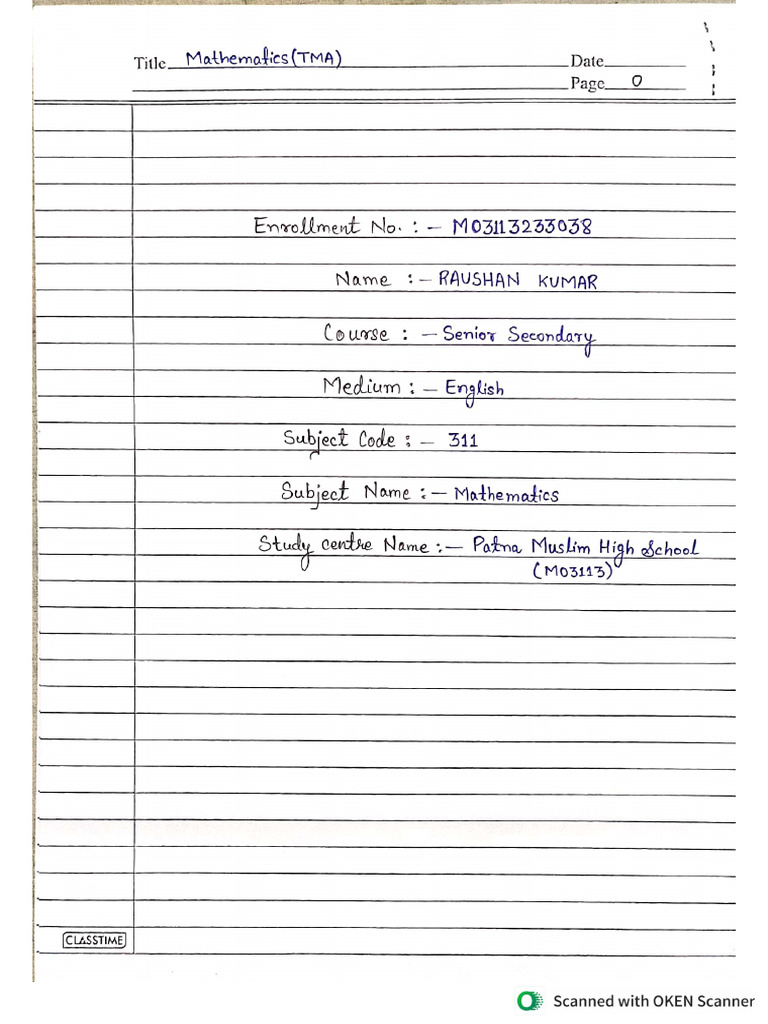 Title Mathematics(TMA) Date
Page 0
Enrollment No. : – M03113233038
Name :– RAUSHAN KUMAR
Course : – Senior Secondary
Medium : – English
Subject Code : – 311
Subject Name :– Mathematics
Study centre Name :– Patna Muslim High School
(M03113)
CLASSTIME
Scanned with OKEN Scanner